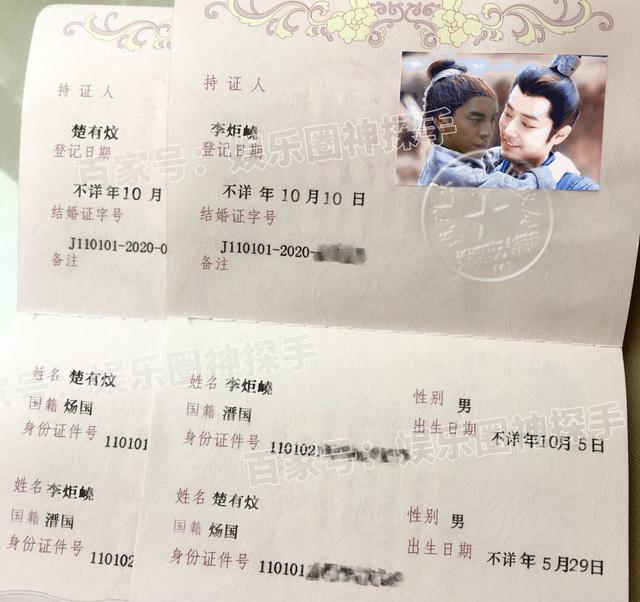 持证人
楚有炆
登记日期
不洋年10月
结婚证字号
J110101-2020-0
备注
姓名 楚有炆
国籍 炀国
身份证件号 110101
姓名 李炬嶢
国籍 溍国
身份证件号 110102
持证人
李炬嶢
登记日期
不洋年10月10日
结婚证字号
J110101-2020-
备注
姓名 李炬嶢
性别 男
国籍 溍国
出生日期 不洋年10月5日
身份证件号 1101021
姓名 楚有炆
性别 男
国籍 炀国
出生日期 不洋年5月29日
身份证件号 110101
百家号：娱乐圈神探手
百家号：娱乐圈神探手
百家号：娱乐圈神探手